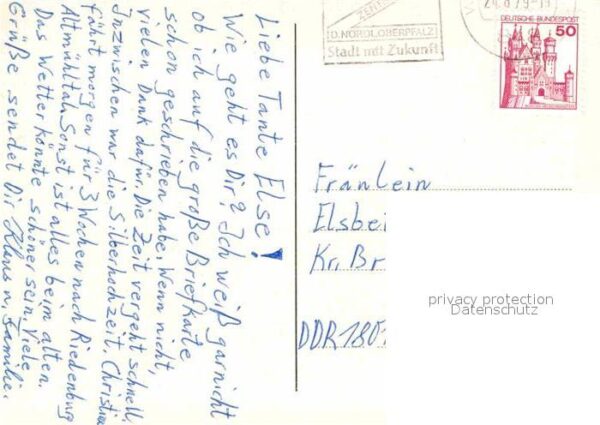 Liebe Tante Else!
Wie geht es Dir? Ich weiß garnicht
ob ich auf die große Briefkarte
schon geschrieben habe. Wenn nicht,
vielen Dank dafür. Die Zeit vergeht schnell.
Inzwischen war die Silberhochzeit. Christian
fährt morgen für 3 Wochen nach Riedenburg
Altmühltal. Sonst ist alles beim alten.
Das Wetter könnte schöner sein. Viele
Grüße sendet Dir Klaus u. Familie.
(O.NORDLOBERPFALZ)
Stadt mit Zukunft
24.8.79-11
DEUTSCHE BUNDESPOST
50
Fräulein
Elsbe
Kr. Br
DDR 180
privacy protection
Datenschutz